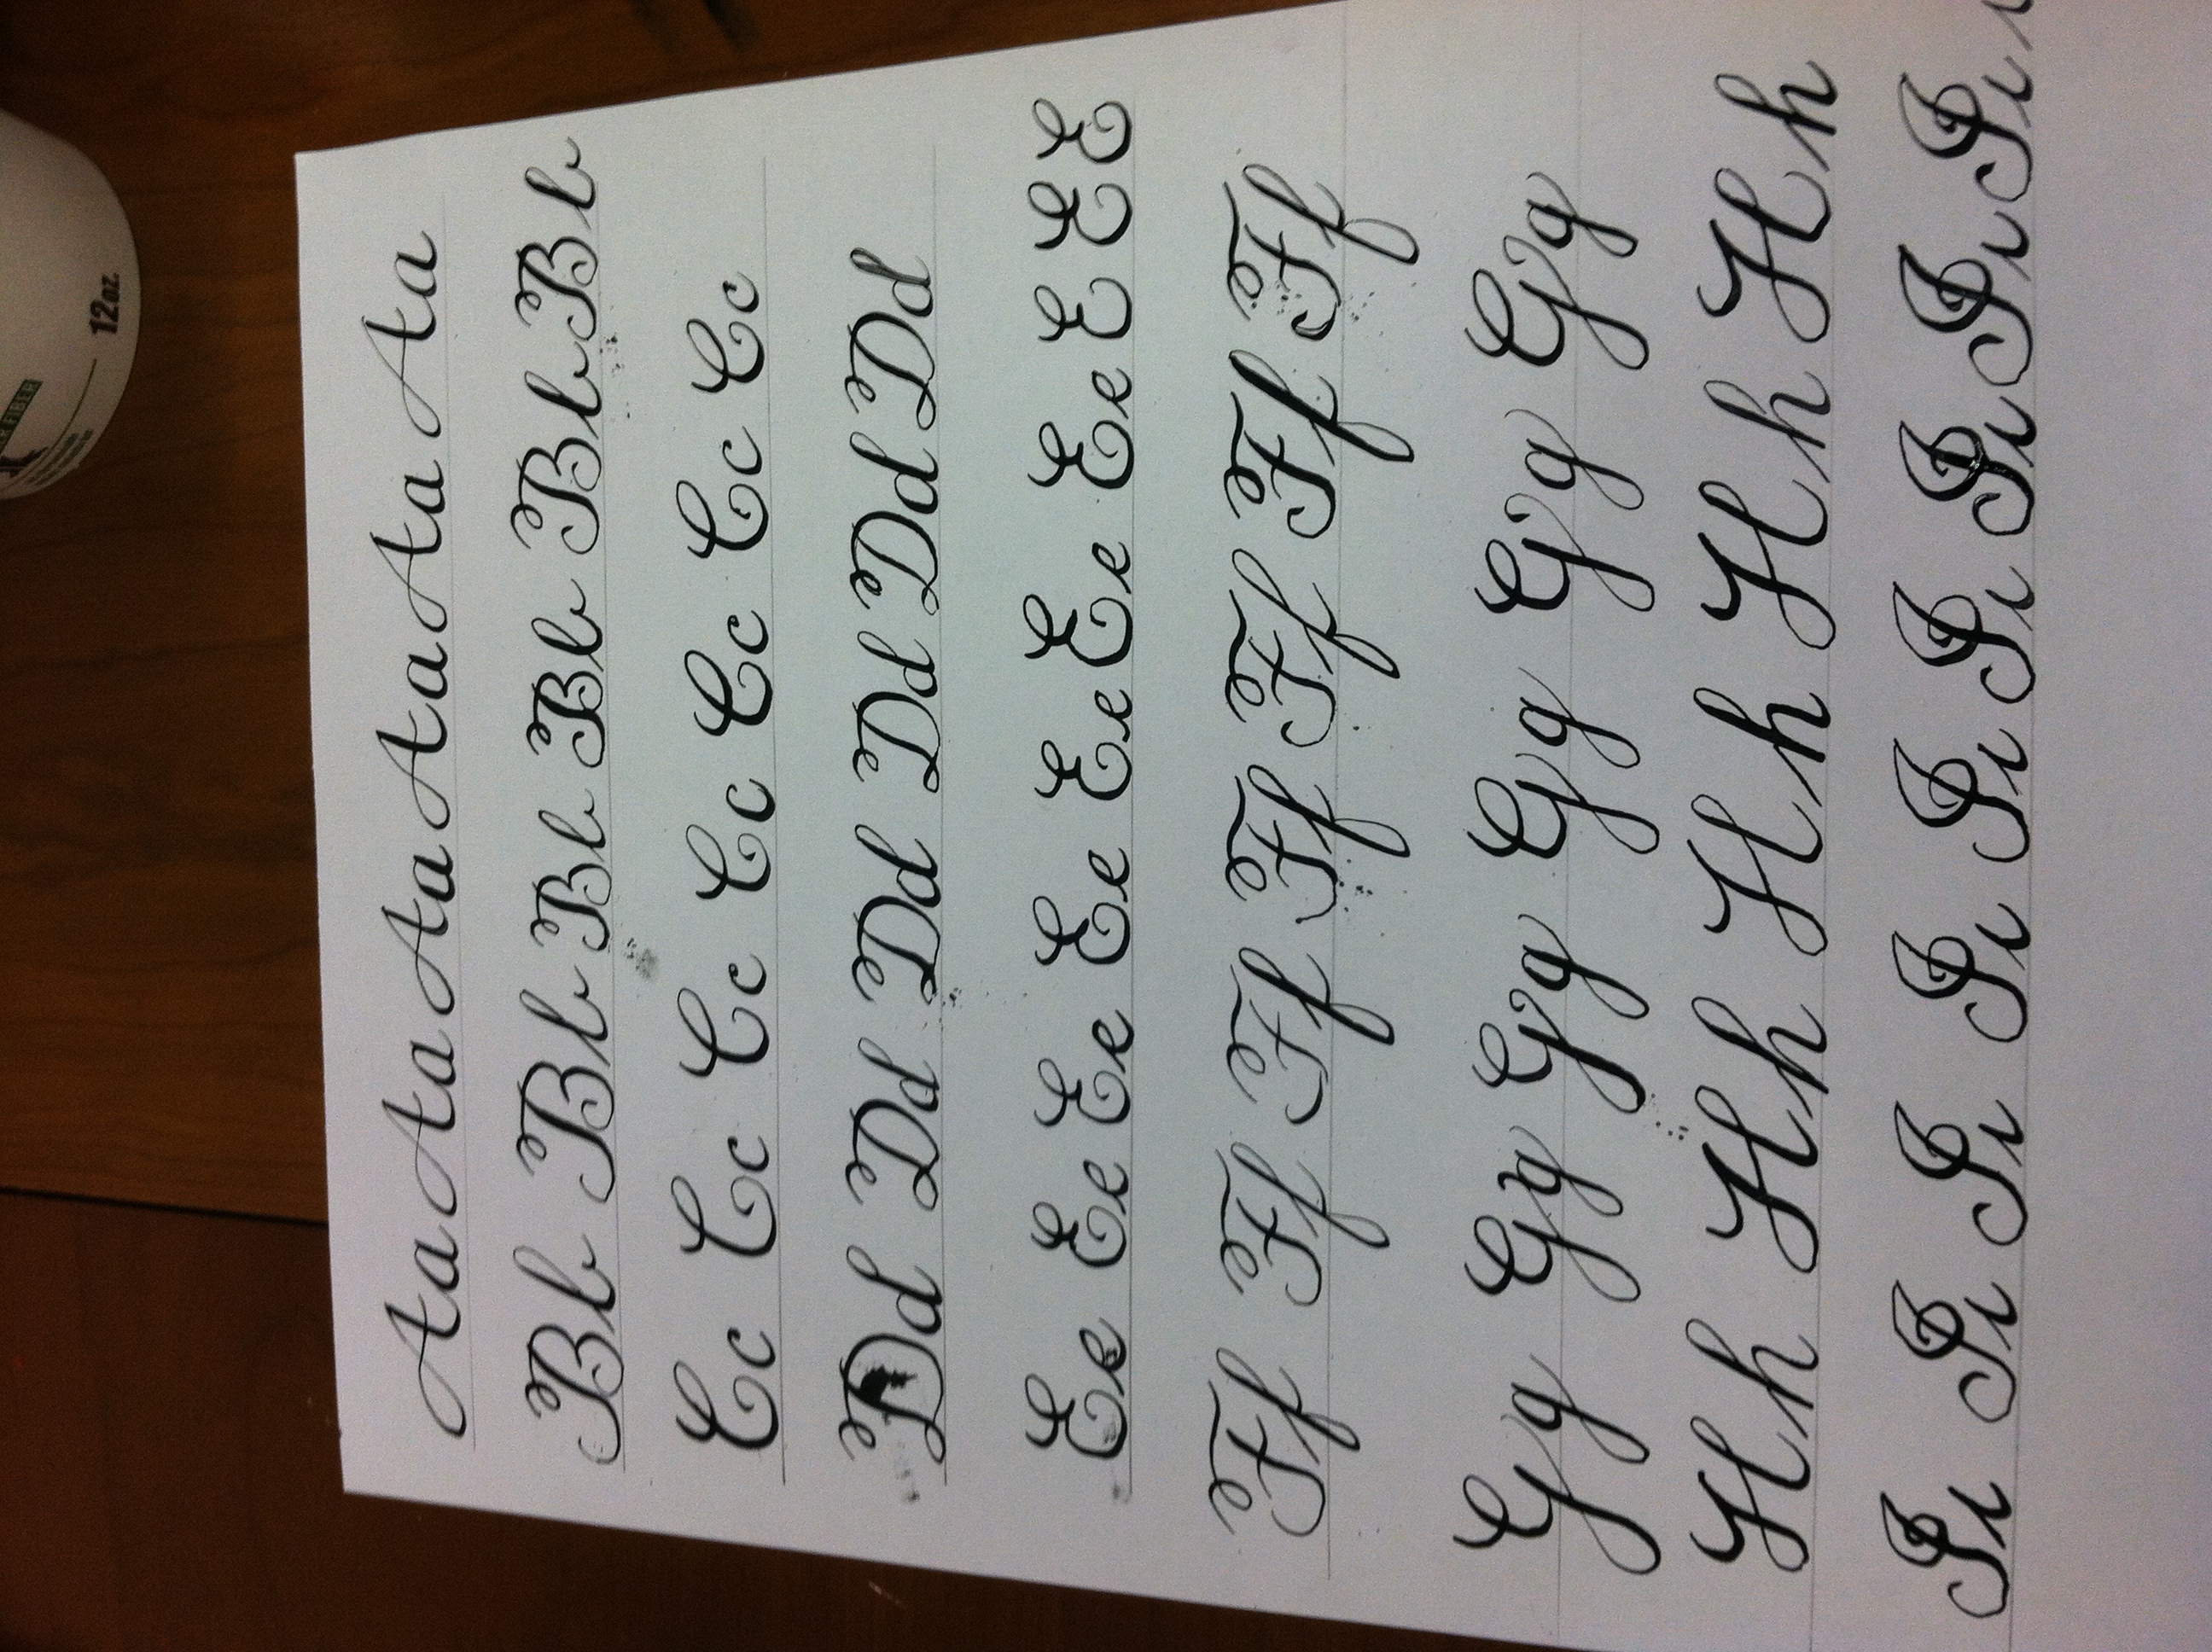 ER FIBER
12oz.
Aa Aa Aa Aa Aa Aa
Bb Bb Bb Bb Bb Bb
Cc Cc Cc Cc Cc Cc Cc
Dd Dd Dd Dd Dd Dd
Ee Ee Ee Ee Ee Ee Ee E E E
Ff Ff Ff Ff Ff Ff Ff
Gg Gg Gg Gg Gg Gg
Hh Hh Hh Hh Hh
Iı Iı Iı Iı Iı Iı Iı Iı Iı ı